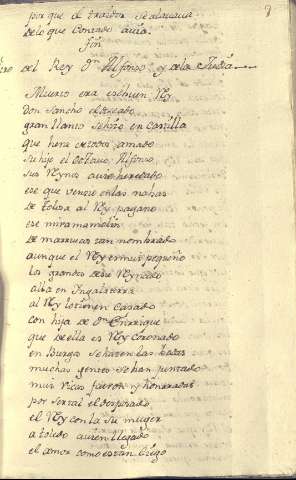 por que el traidor se alauaua
de lo que Conrado auia.
fin
8
del Rey Dn Alfonso y de la Judia
Muerto era ese buen Rey
Don Sancho el deseado
gran llanto se hizo en Castilla
que hera de todos amado
su hijo el Octauo Alfonso
sus Reynos auia heredado
ese que vencio en las nabas
de tolosa al Rey pagano
ese miramamolin
de marruecos tan nombrado
aunque el Rey era muy pequeño
los grandes de su Reynado
alla en Ingalaterra
al Rey lo tienen casado
con hija de Dn Enrrique
que de ella es Rey coronado
en Burgos se hazen las bodas
muchas gentes se han juntado
muy ricas fueron y honrradas
por ser tal el desposado
el Rey con la su muger
a toledo auien llegado
el amor como es tan ciego